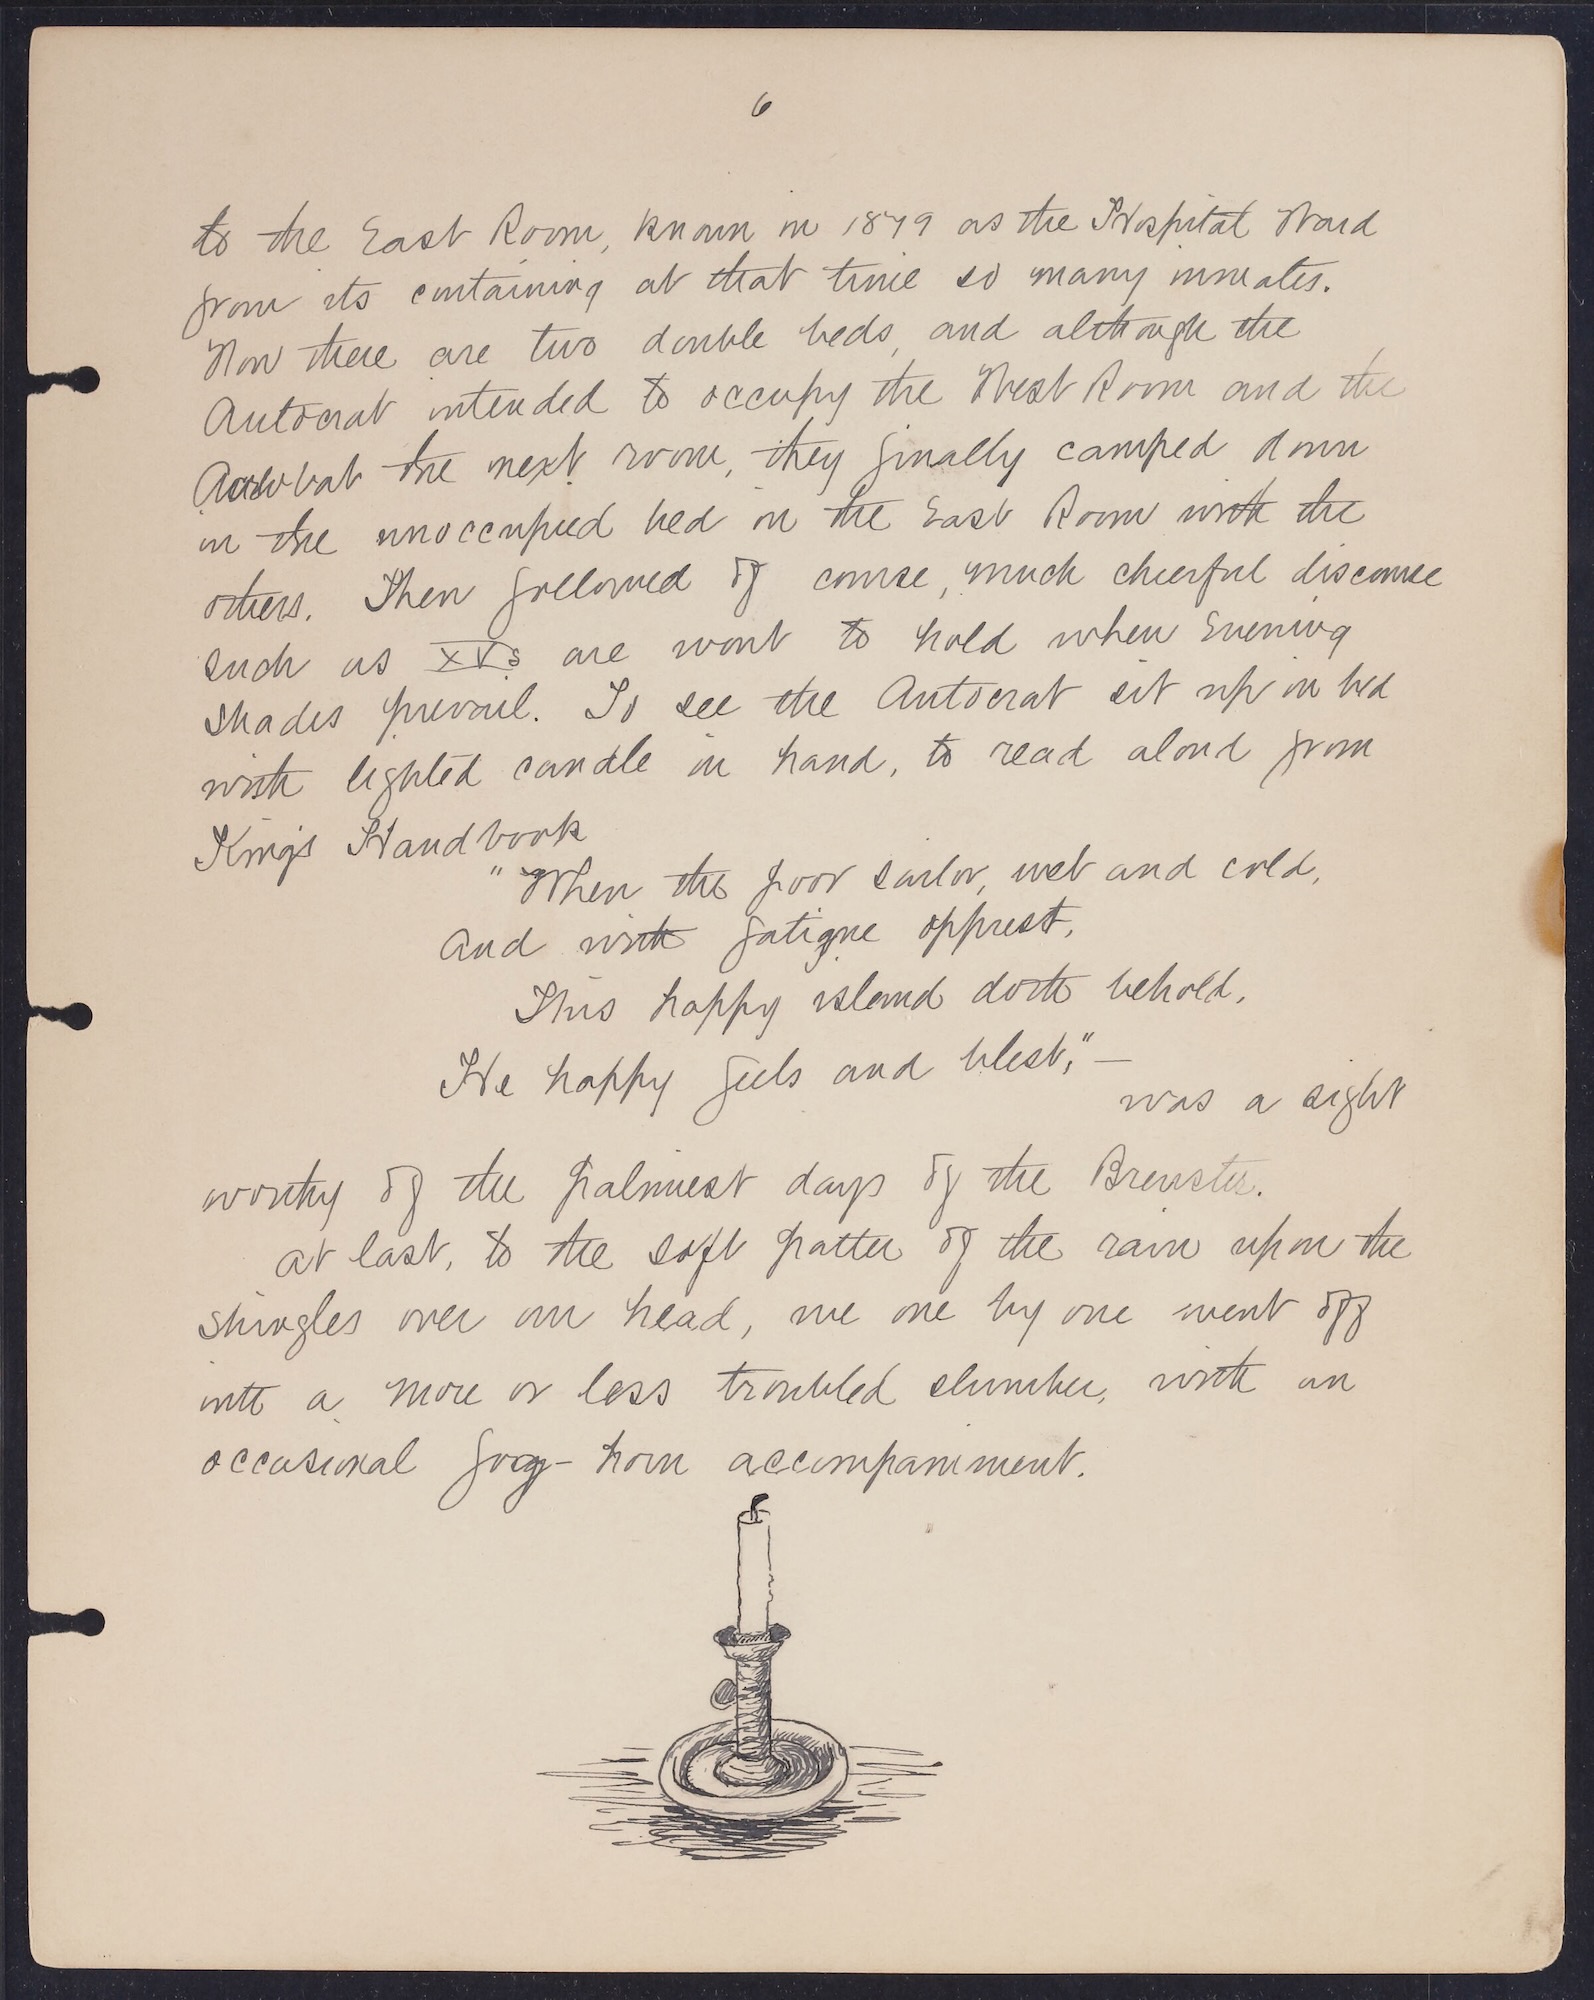 6
to the East Room, known in 1879 as the Hospital Ward
from its containing at that time so many inmates.
Now there are two double beds, and although the
Autocrat intended to occupy the West Room and the
Acrobat the next room, they finally camped down
in the unoccupied bed in the East Room with the
others. Then followed of course, much cheerful discourse
such as XVs are wont to hold when Evening
shades prevail. To see the Autocrat sit up in bed
with lighted candle in hand, to read aloud from
King's Handbook
"When the poor sailor, wet and cold,
And with fatigue opprest,
This happy island doth behold,
He happy feels and blest," —
was a sight
worthy of the palmiest days of the Brewster.
At last, to the soft patter of the rain upon the
shingles over our head, we one by one went off
into a more or less troubled slumber, with an
occasional fog-horn accompaniment.